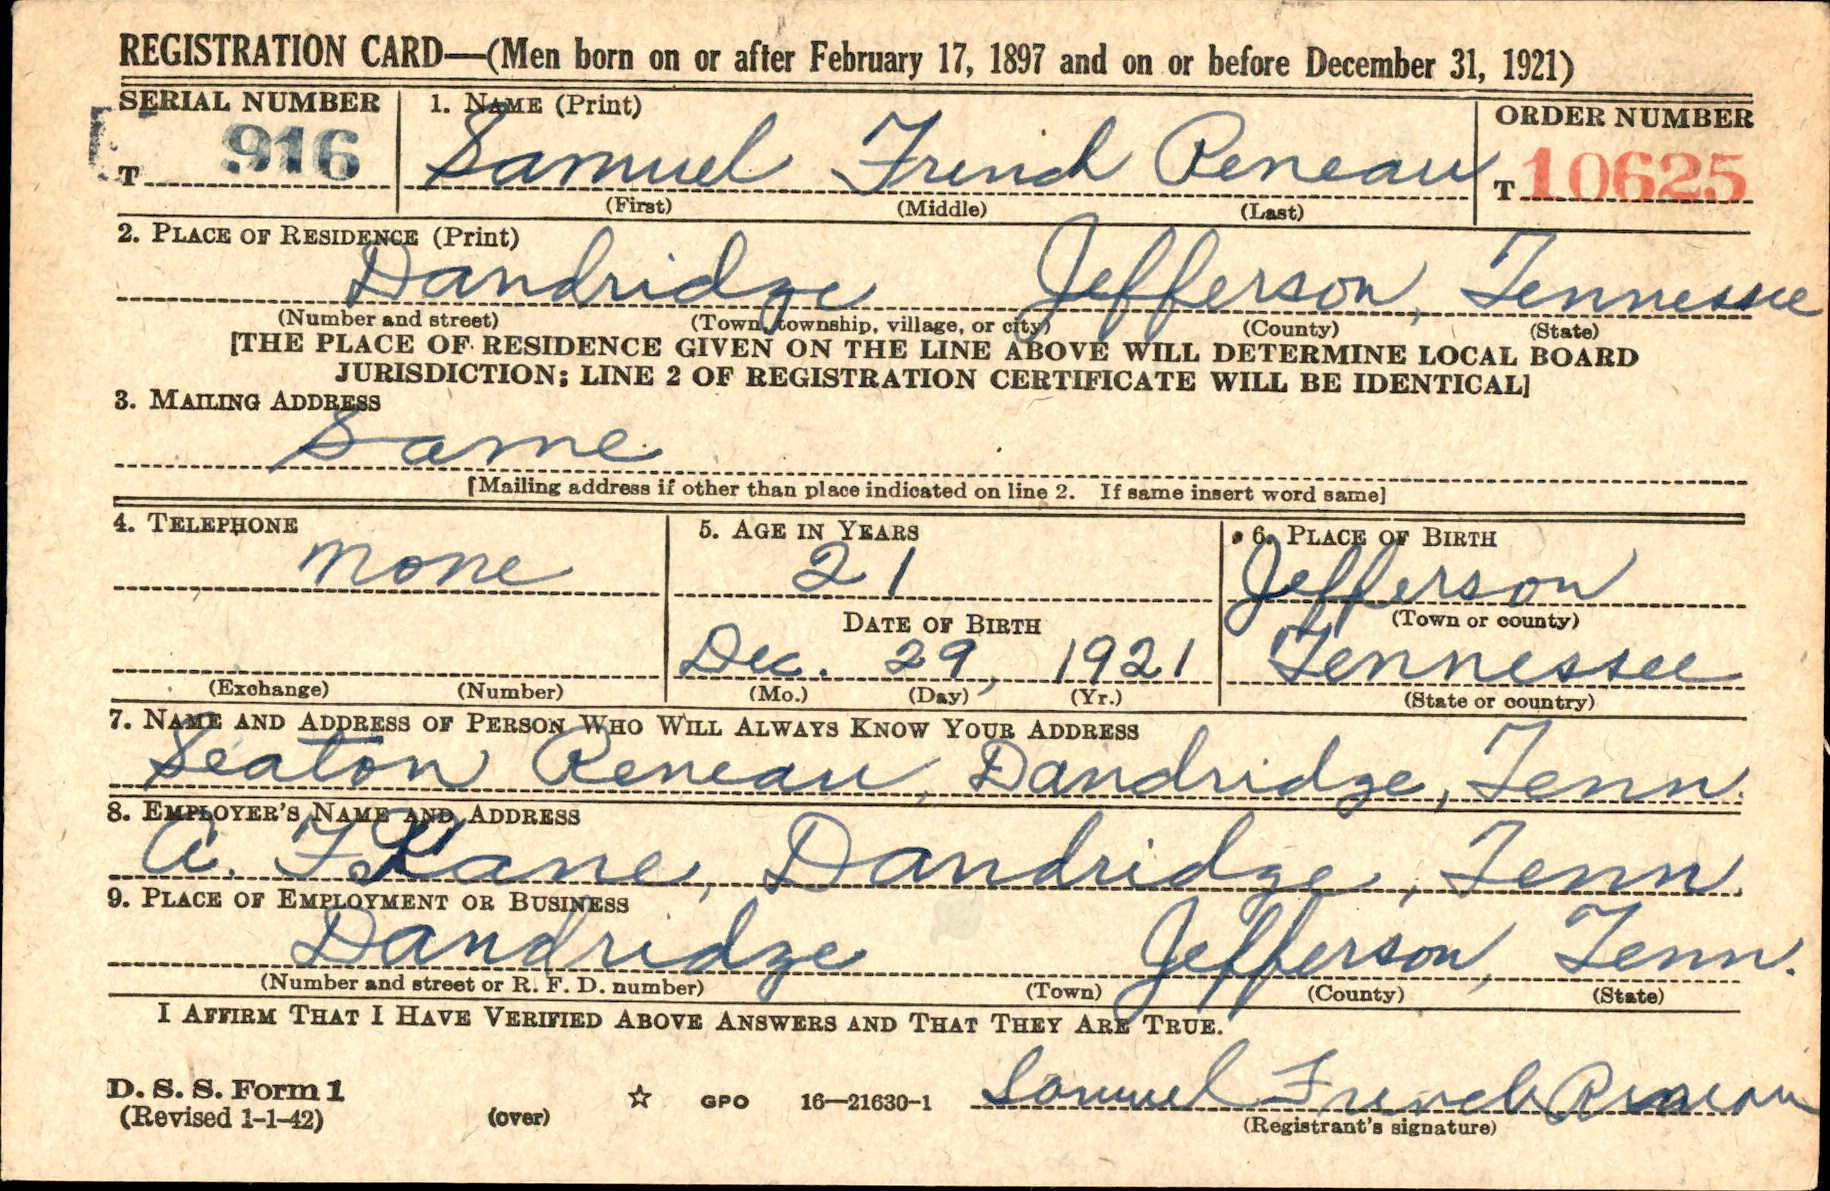 REGISTRATION CARD—(Men born on or after February 17, 1897 and on or before December 31, 1921)
SERIAL NUMBER 1. NAME (Print) ORDER NUMBER
T 916 Samuel French Reneau T 10625
(First) (Middle) (Last)
2. PLACE OF RESIDENCE (Print)
Dandridge Jefferson, Tennessee
(Number and street) (Town, township, village, or city) (County) (State)
[THE PLACE OF RESIDENCE GIVEN ON THE LINE ABOVE WILL DETERMINE LOCAL BOARD
JURISDICTION; LINE 2 OF REGISTRATION CERTIFICATE WILL BE IDENTICAL]
3. MAILING ADDRESS
Same
[Mailing address if other than place indicated on line 2. If same insert word same]
4. TELEPHONE 5. AGE IN YEARS 6. PLACE OF BIRTH
none 21 Jefferson
(Town or county)
DATE OF BIRTH
Dec. 29, 1921 Tennessee
(Exchange) (Number) (Mo.) (Day) (Yr.) (State or country)
7. NAME AND ADDRESS OF PERSON WHO WILL ALWAYS KNOW YOUR ADDRESS
Seaton Reneau, Dandridge, Tenn.
8. EMPLOYER'S NAME AND ADDRESS
A. F. Kane, Dandridge, Tenn.
9. PLACE OF EMPLOYMENT OR BUSINESS
Dandridge Jefferson, Tenn.
(Number and street or R. F. D. number) (Town) (County) (State)
I AFFIRM THAT I HAVE VERIFIED ABOVE ANSWERS AND THAT THEY ARE TRUE.
D. S. S. Form 1
(Revised 1-1-42) (over) ☆ GPO 16—21630-1 Samuel French Reneau
(Registrant's signature)